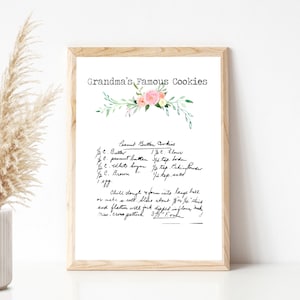 Grandma's Famous Cookies
Peanut Butter Cookies
½ C. Butter 1¼ C. Flour
½ C. peanut butter ¾ tsp Soda
½ C. White Sugar ½ tsp Baking Powder
½ C. Brown ¼ tsp salt
1 egg
Chill dough & form into large ball
and flatten with fork dipped in flour, make
criss cross pattern